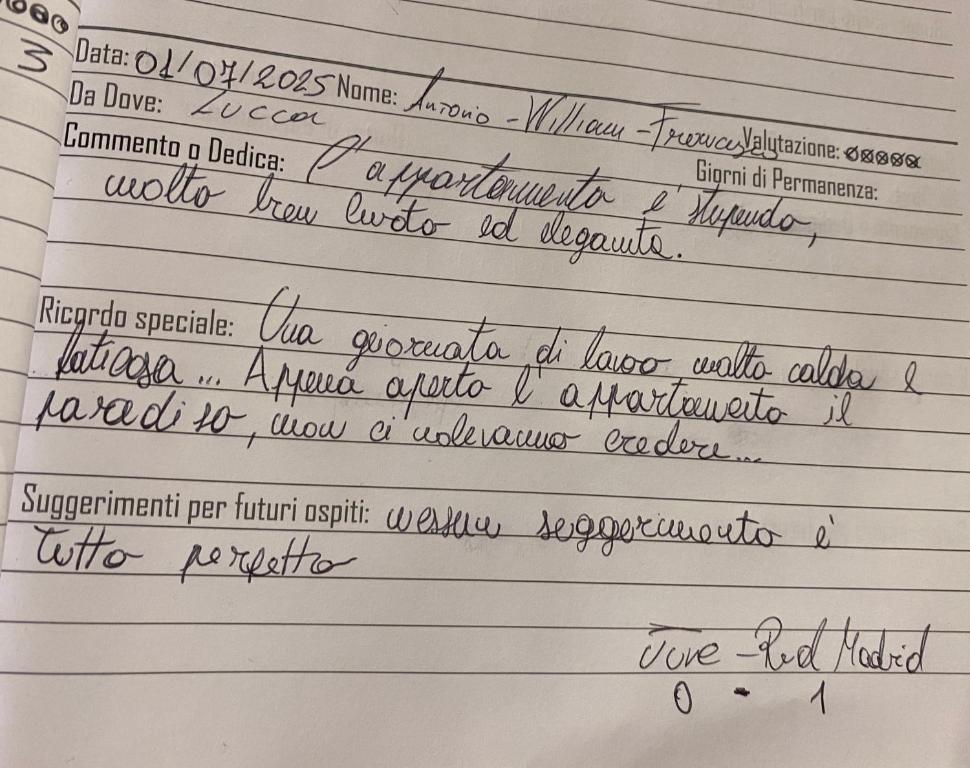 3
Data: 01/07/2025 Nome: Antonio - William - Francesco
Da Dove: Lucca Valutazione:
Giorni di Permanenza:
Commento o Dedica: l'appartamento è stupendo,
molto ben curato ed elegante.
Ricordo speciale: Una giornata di lavoro molto calda e
faticosa... Appena aperto l'appartamento il
paradiso, non ci volevamo credere...
Suggerimenti per futuri ospiti: nessun seggerimento è
tutto perfetto
Juve - Real Madrid
0 - 1